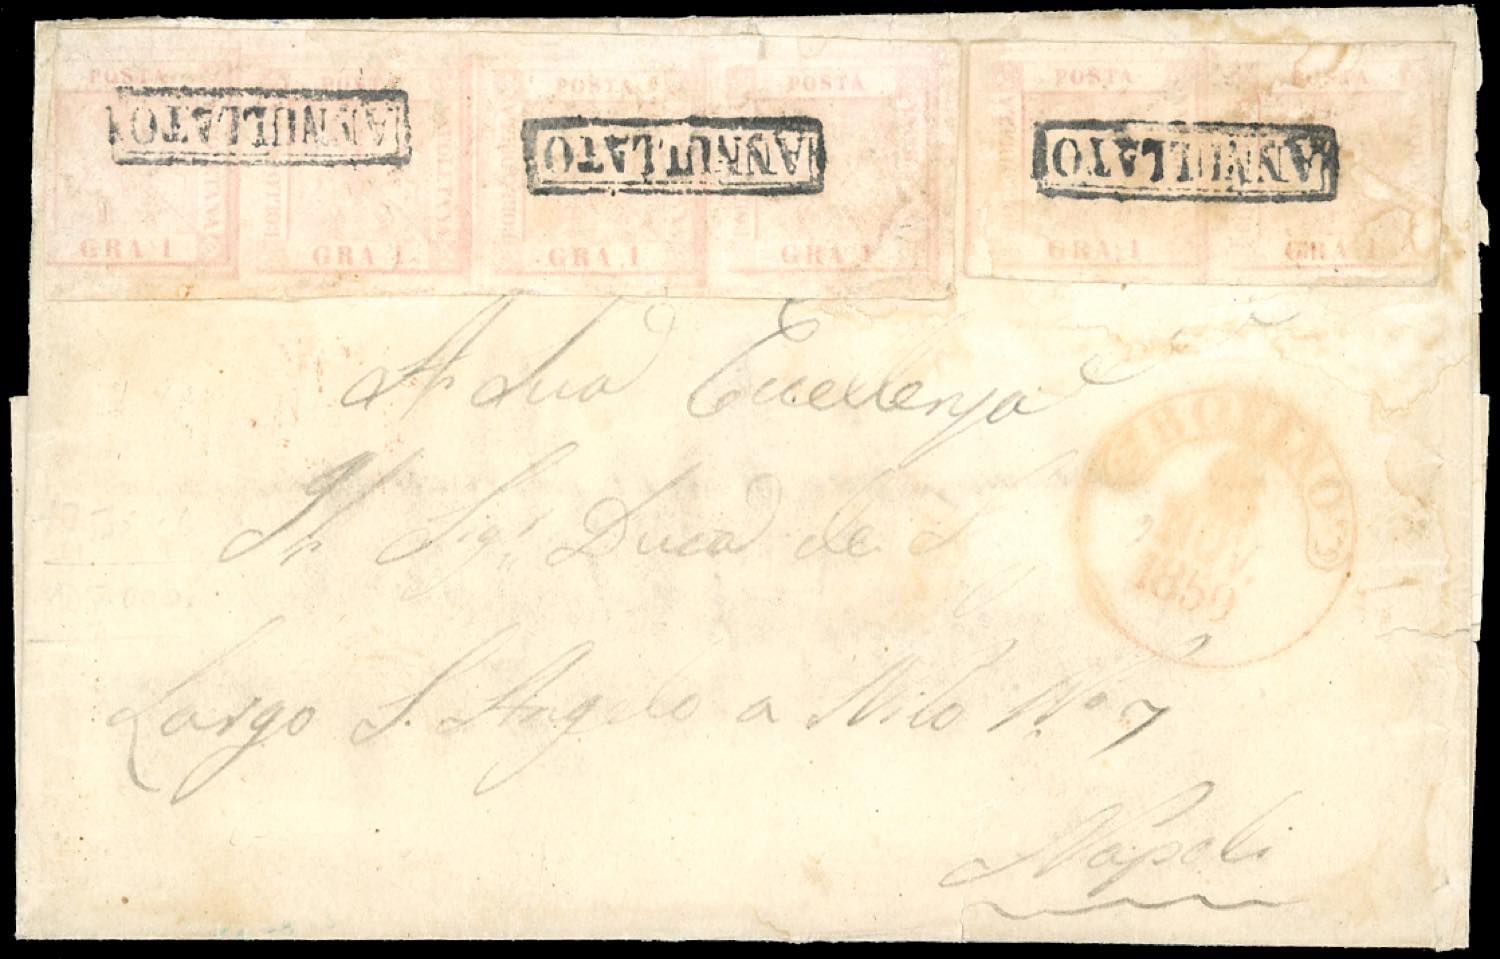 POSTA POSTA POSTA POSTA POSTA POSTA
ANNULLATO ANNULLATO ANNULLATO
GRA 1 GRA 1 GRA 1 GRA 1 GRA 1 GRA 1
A Sua Eccellenza
Il Sigr Duca de
BOVINO
NOV.
1859
Largo S. Angelo a Nilo No 7
Napoli